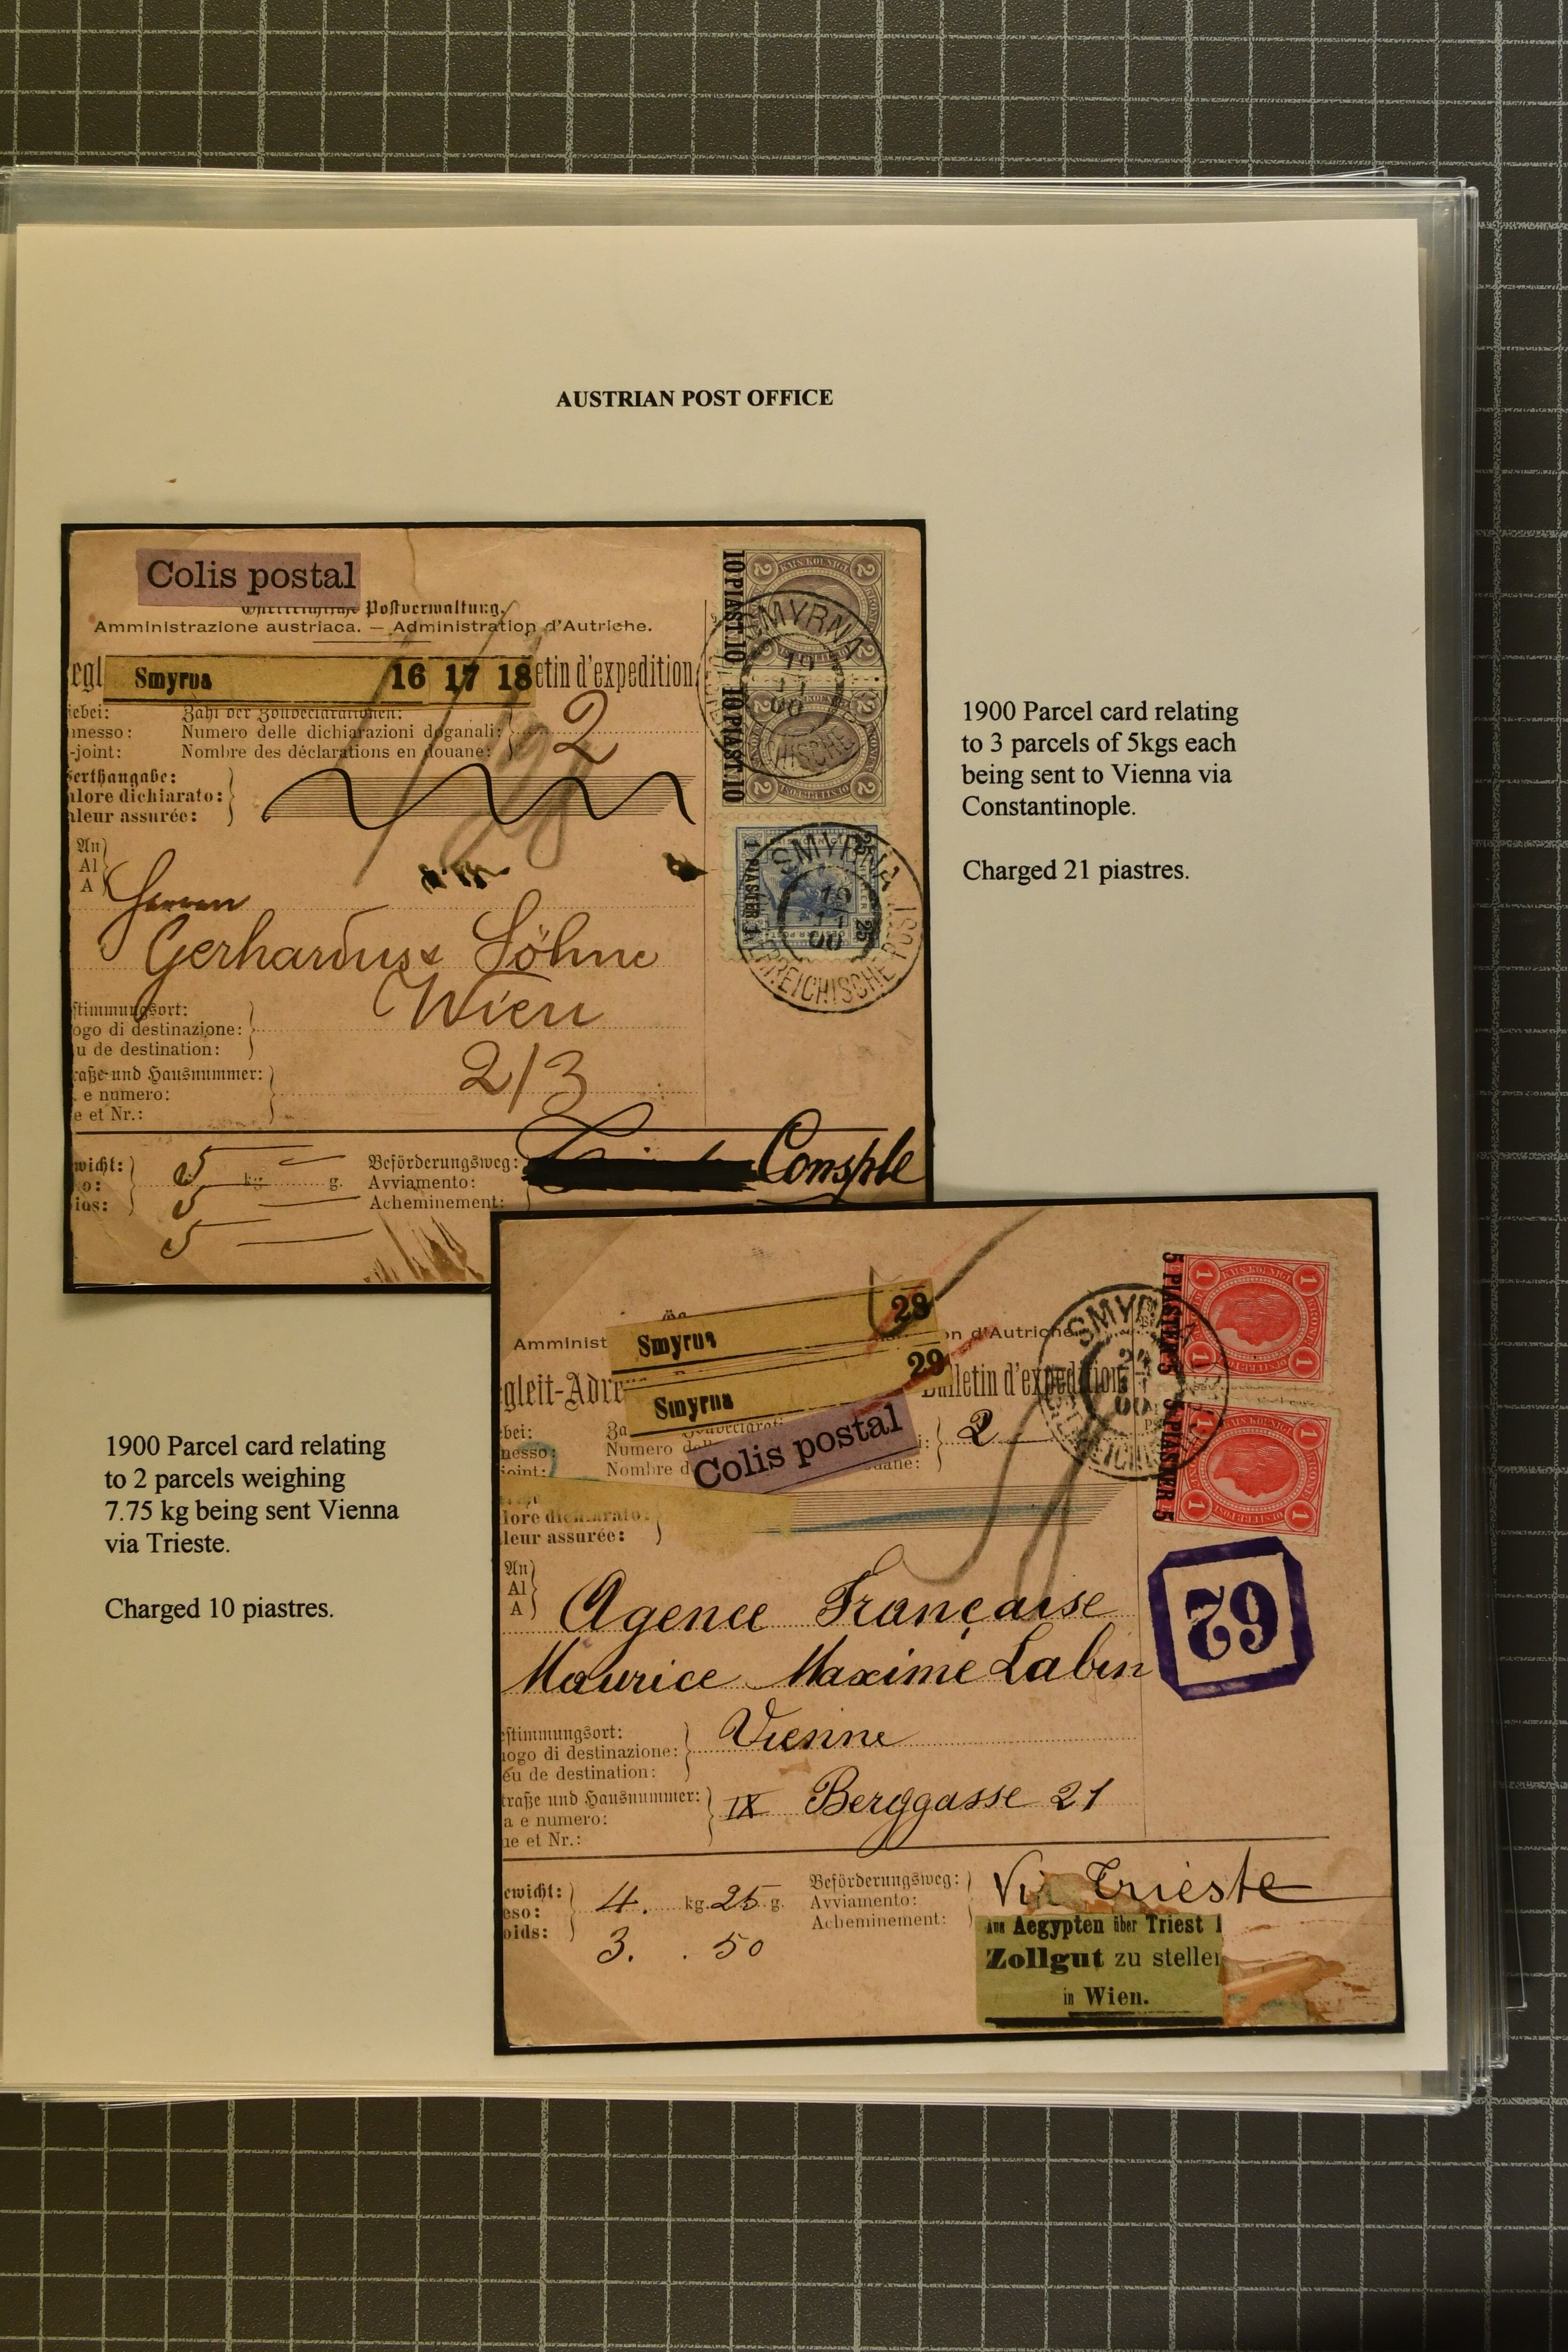 AUSTRIAN POST OFFICE
Colis postal
Postverwaltung,
Amministrazione austriaca. — Administration d'Autriche.
egl Smyrna 16 17 18 etin d'expedition
iebei: Zahl der Zolldeclarationen:
nesso: Numero delle dichiarazioni doganali: 2
-joint: Nombre des déclarations en douane:
erthangabe:
alore dichiarato:
aleur assurée:
An
Al
A
Herren
Gerhardus Söhne
Wien
stimmungsort:
ogo di destinazione:
u de destination:
2/3
raße und Hausnummer:
. e numero:
e et Nr.:
wicht: 5 kg. g. Beförderungsweg: Consple
o: 5 Avviamento:
ids: 5 Acheminement:
10 PIAST. 10
10 PIAST. 10
2 KRONE
SMYRNA
19
11
00
1 PIASTER 1
25
SMYRNA
19
11
00
ÖSTERREICHISCHE POST
1900 Parcel card relating
to 3 parcels of 5kgs each
being sent to Vienna via
Constantinople.
Charged 21 piastres.
1900 Parcel card relating
to 2 parcels weighing
7.75 kg being sent Vienna
via Trieste.
Charged 10 piastres.
Amminist Smyrna 28 on d'Autriche
gleit-Adre Smyrna 29 Bulletin d'expedition
bei: Za
nesso: Numero 2
joint: Nombre d
Colis postal
lore dichiarato:
leur assurée:
An
Al
A
Agence Française
Maurice Maxime Labin
stimmungsort: Vienne
uogo di destinazione:
eu de destination:
traße und Hausnummer: IX Berggasse 21
a e numero:
ue et Nr.:
ewicht: 4. kg. 25 g. Beförderungsweg: Via Trieste
eso: Avviamento:
oids: 3. . 50 Acheminement:
Aus Aegypten über Triest
Zollgut zu stellen
in Wien.
5 PIASTER 5
5 PIASTER 5
1 KRONE
SMYRNA
62